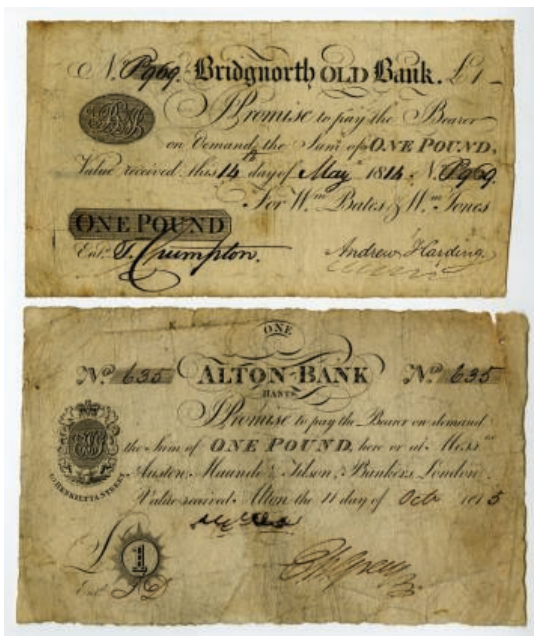 No. P969. Bridgnorth OLD Bank. £1
I Promise to pay the Bearer
on Demand the Sum of ONE POUND,
Value received this 14 day of May 1814 No. P969
For Wm. Bates & Wm. Jones
ONE POUND
Entd. T. Crumpton.
Andrew Harding
ONE
No. 635 ALTON BANK No. 635
HANTS
I Promise to pay the Bearer on demand
the Sum of ONE POUND, here or at Messrs
Austen, Maunde & Tilson, Bankers London.
10 HENRIETTA STREET
Value received. Alton the 11 day of Oct 1815
£ 1
Entd.